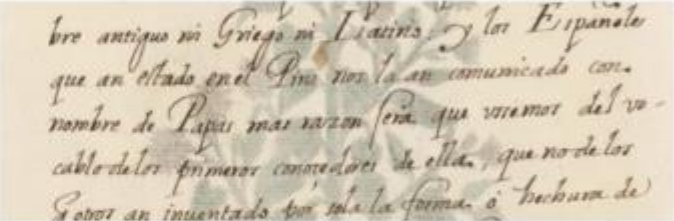 bre antiguo ni Griego ni Latino, y los Españoles
que an estado en el Piru nos la an comunicado con
nombre de Papas mas razon sera que usemos del vo-
cablo de los primeros conoçedores de ella, que no de los
q otros an inventado por sola la forma o hechura de